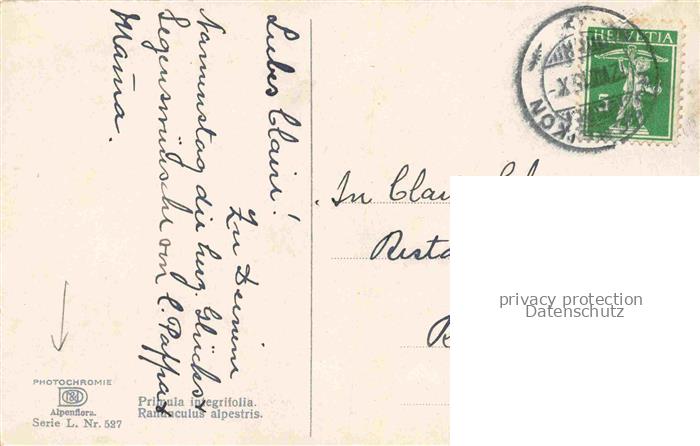 Liebes Clairi!
Zu Deinem
Namenstag die herz. Glücks &
Segenswünsche von l. Pappa &
Mama.
In Clai
Resta
HELVETIA
5
KON
privacy protection
Datenschutz
PHOTOCHROMIE
Alpenflora.
Serie L. Nr. 527
Primula integrifolia.
Ranunculus alpestris.